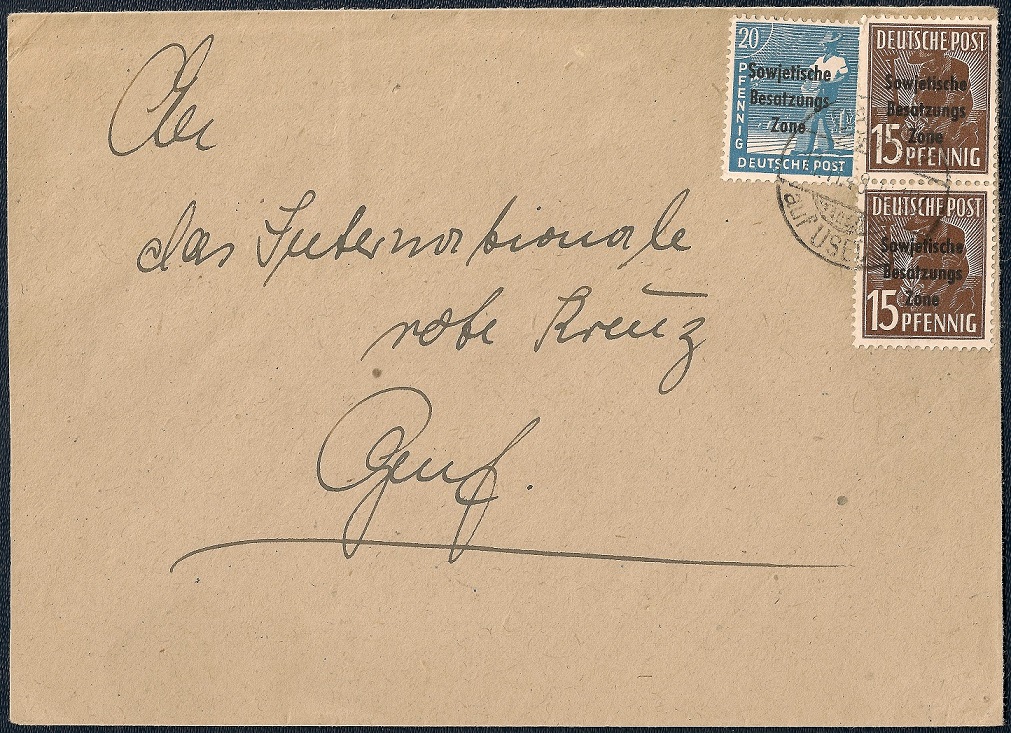 An
das Internationale
rote Kreuz
Genf.
20
PFENNIG
Sowjetische
Besatzungs-
Zone
DEUTSCHE POST
DEUTSCHE POST
Sowjetische
Besatzungs
Zone
15 PFENNIG
DEUTSCHE POST
Sowjetische
Besatzungs
Zone
15 PFENNIG
auf USED